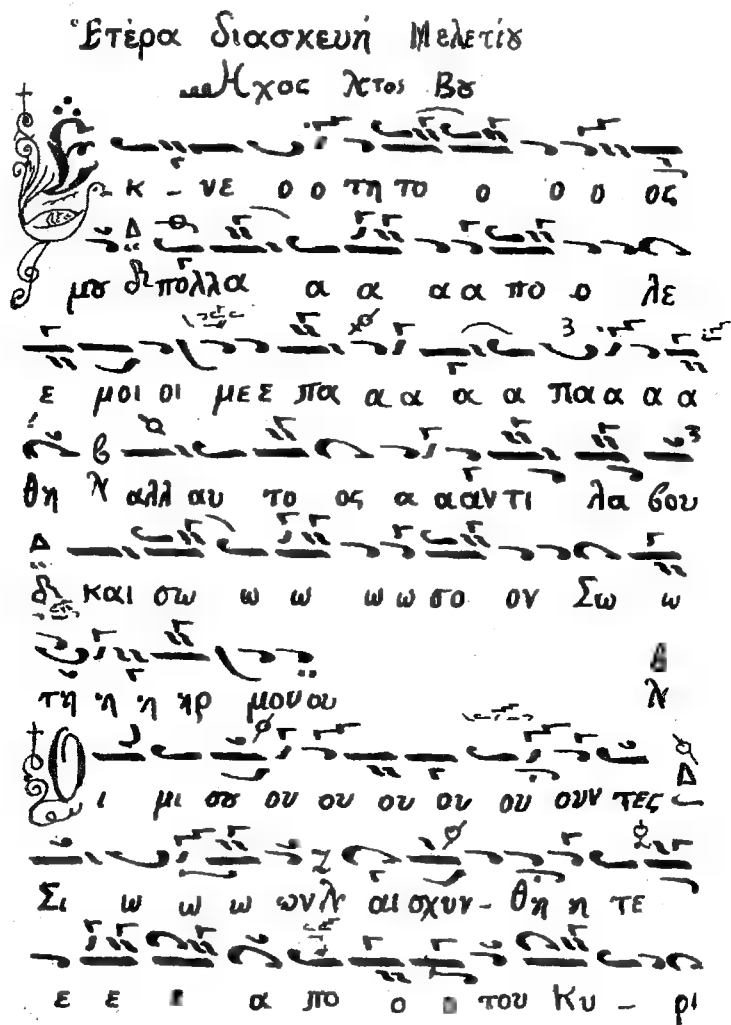 Ἑτέρα διασκευή Μελετίου
Ἦχος Βου
Ἐκ - νε ο ο τη το ο ο ο ος
μου πολλα α α α α πο ο λε
ε μοι οι με ε πα α α α α πα α α α α
θη αλλ αυ το ος α α αντι λα βου
και σω ω ω ω ω σο ον Σω ω
τη η η ηρ μου ου
Οι μι σου ου ου ου ου ου ουν τες
Σι ω ω ω ων αι σχυν - θη η τε
ε ε α πο ο του Κυ - ρι